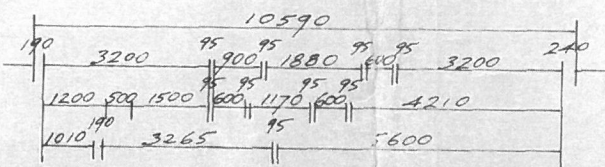 10590
190 3200 95 900 95 1880 95 600 95 3200 240
1200 500 1500 95 600 95 1170 95 600 95 4210
1010 190 3265 95 5600